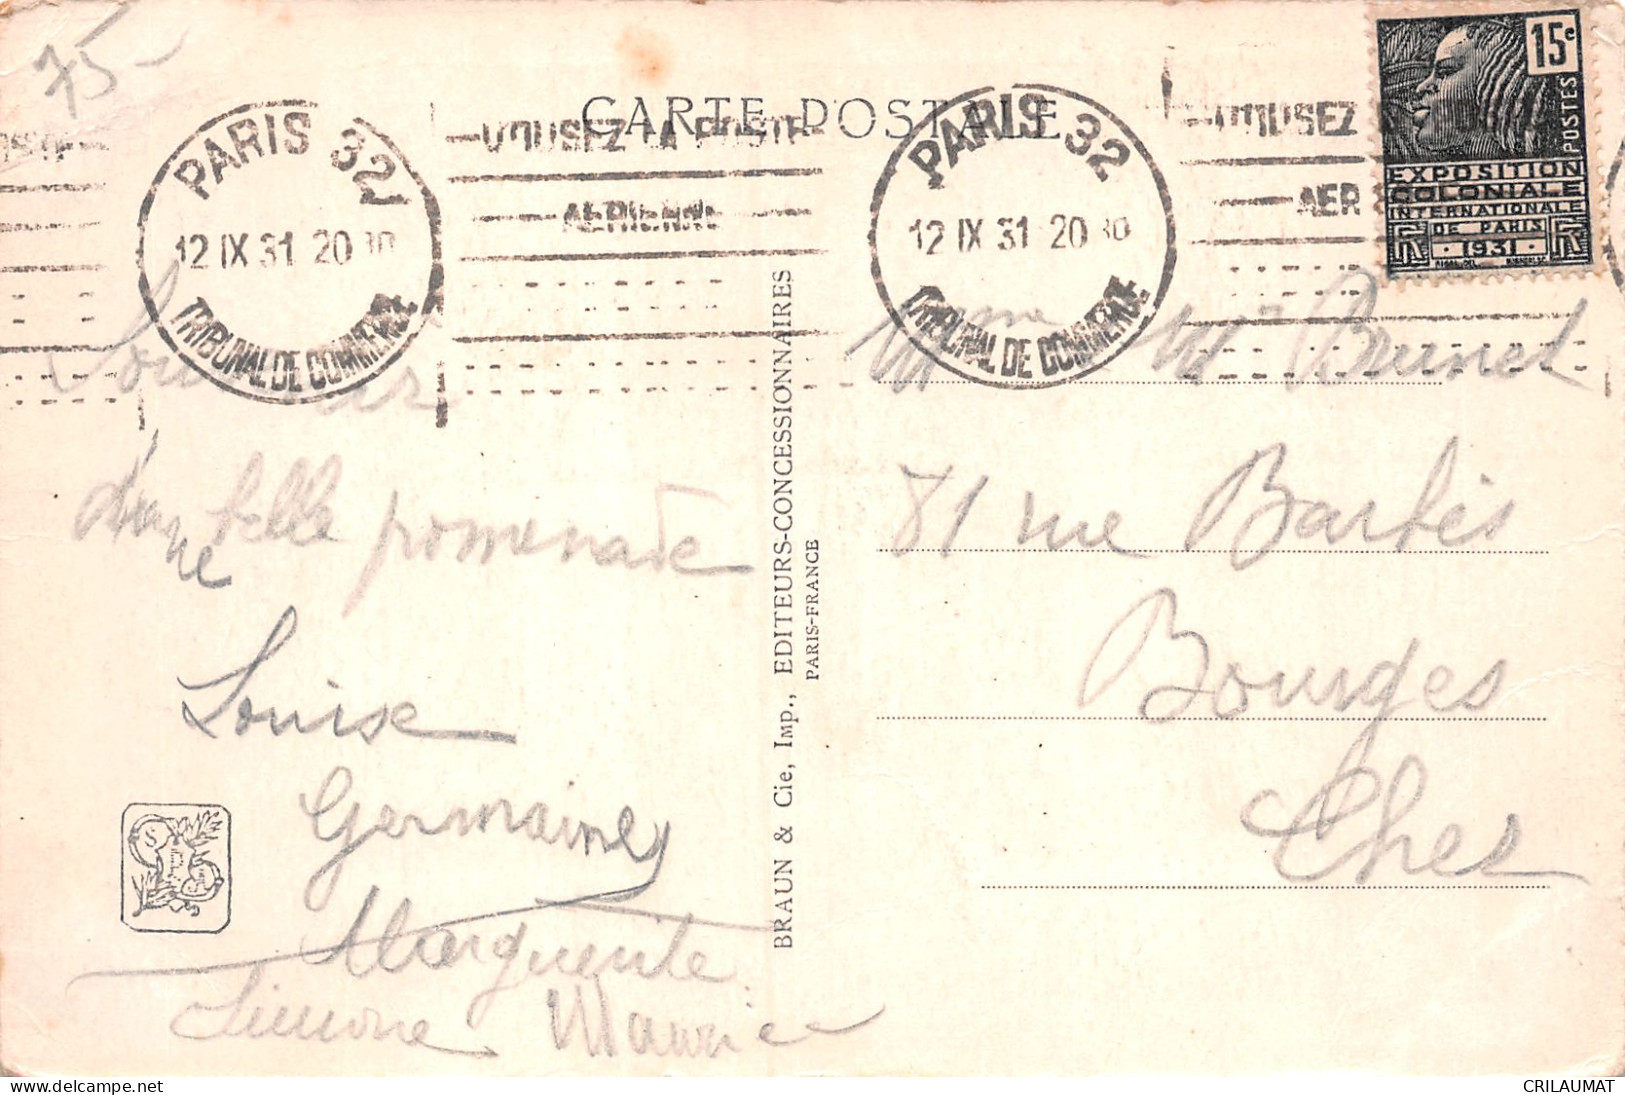 75-
CARTE POSTALE
PARIS 32
12 IX 31 20 30
TRIBUNAL DE COMMERCE
UTILISEZ LA POSTE
AERIENNE
PARIS 32
12 IX 31 20 30
TRIBUNAL DE COMMERCE
UTILISEZ
AER
15c
POSTES
EXPOSITION
COLONIALE
INTERNATIONALE
DE PARIS
1931
Souvenir
d'une belle promenade
Louise
Germaine
Marguerite
Simone Maurice
BRAUN & Cie, Imp., EDITEURS-CONCESSIONNAIRES
PARIS-FRANCE
Mme Brunet
81 rue Barbès
Bourges
Cher
CRILAUMAT